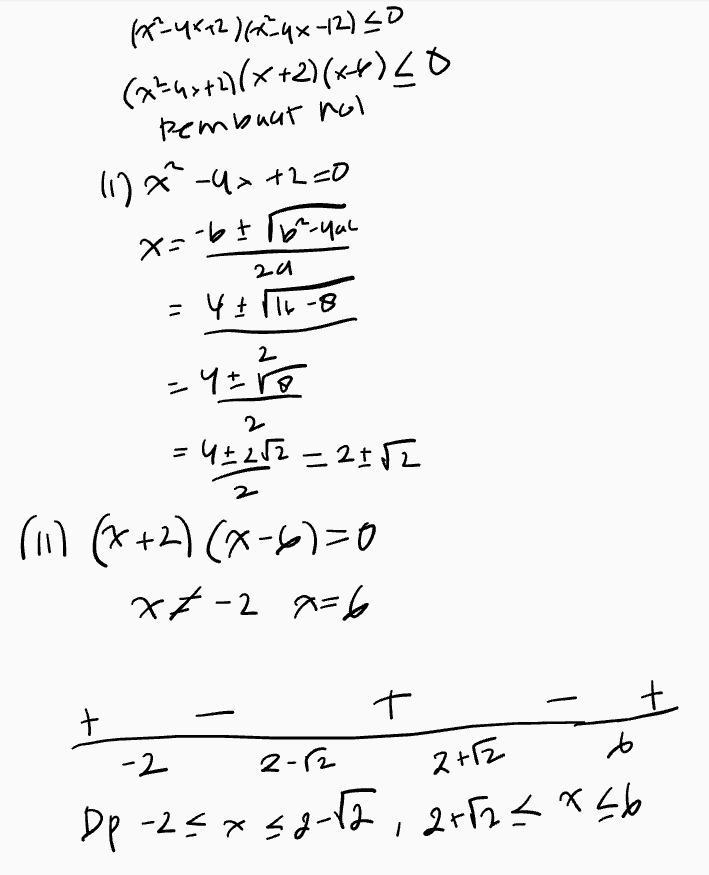 (x²-4x+2)(x²-4x-12) ≤ 0
(x²-4x+2)(x+2)(x-6) ≤ 0
Pembuat nol
(i) x² - 4x + 2 = 0
x = -b ± √b²-4ac / 2a
= 4 ± √16-8 / 2
= 4 ± √8 / 2
= 4 ± 2√2 / 2 = 2 ± √2
(ii) (x+2) (x-6) = 0
x ≠ -2 x = 6
+ - + - +
-2 2-√2 2+√2 6
Dp -2 ≤ x ≤ 2-√2 , 2+√2 ≤ x ≤ 6